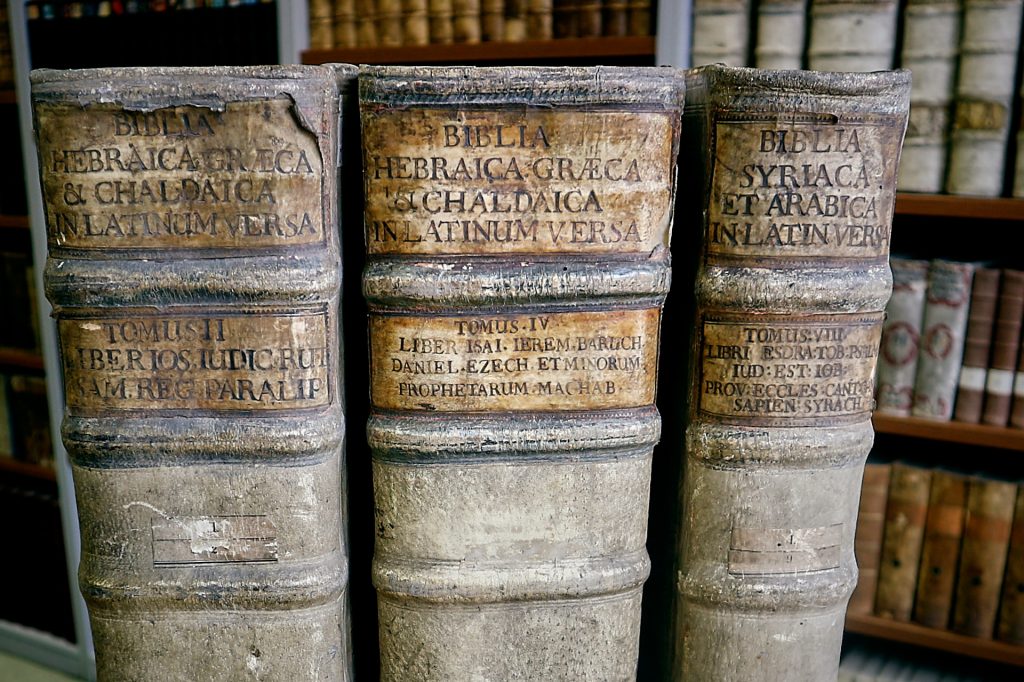 BIBLIA
HEBRAICA·GRÆCA
& CHALDAICA
IN LATINUM VERSA
TOMUS II
LIBER IOS. IUDIC. RUT
SAM. REG. PARALIP
BIBLIA
HEBRAICA·GRÆCA
& CHALDAICA
IN LATINUM VERSA
TOMUS·IV
LIBER ISAI. IEREM. BARUCH.
DANIEL. EZECH. ET MINORUM.
PROPHETARUM·MACHAB·
BIBLIA
SYRIACA
ET ARABICA
IN LATIN VERSA
TOMUS·VIII
LIBRI ESDRA·TOB·
IUD: EST: IOB:
PROV: ECCLES CANT·
SAPIEN SYRACH